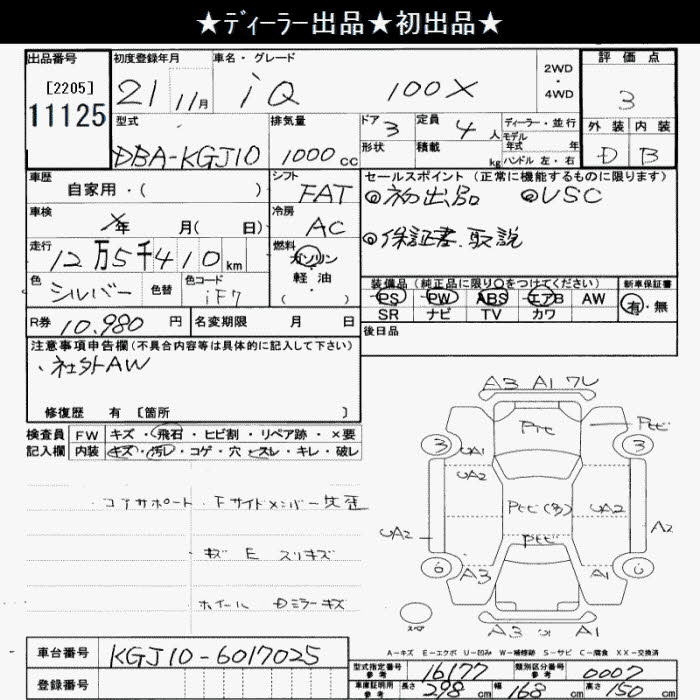 ★ディーラー出品★初出品★
出品番号
[2205]
11125
初度登録年月
21 11月
車名・グレード
iQ 100X
2WD
・
4WD
評価点
3
外装 内装
D B
型式
DBA-KGJ10
排気量
1000cc
ドア
3
形状
定員
4人
積載
kg
ディーラー・並行
モデル
年式 年
ハンドル 左・右
車歴
自家用・( )
シフト
FAT
セールスポイント(正常に機能するものに限ります)
◎初出品 ◎VSC
◎保証書.取説
車検
X年 月( 日)
冷房
AC
走行
12万5千410km
燃料
ガソリン
軽油
( )
色
シルバー
色替
色コード
1F7
装備品(純正品に限り○をつけてください)
PS PW ABS エアB AW
SR ナビ TV カワ
新車保証書
有・無
R券 10.980円
名変期限 月 日
後日品
注意事項申告欄(不具合内容等は具体的に記入して下さい)
・社外AW
修復歴 有 〔箇所 〕
検査員
記入欄
FW キズ・飛石・ヒビ割・リペア跡・×要
内装 キズ・汚レ・コゲ・穴・スレ・キレ・破レ
コアサポート.Fサイドメンバー先歪
キズ E スリキズ
ホイール Dミラーキズ
A3 A1 フレ
Pヒビ
Pヒビ
3 3
UA1
UA2
Pヒビ(多)
UA2
Pヒビ
UA2
A2
6 6
A3 A1
スペア
A3 A1
A-キズ E-エクボ U-凹み W-補修跡 S-サビ C-腐食 XX-交換済
車台番号
KGJ10-6017025
登録番号
型式指定番号
参考
16177
類別区分番号
参考
0007
車庫証明用
参考
長さ 298cm 幅 168cm 高さ 150cm